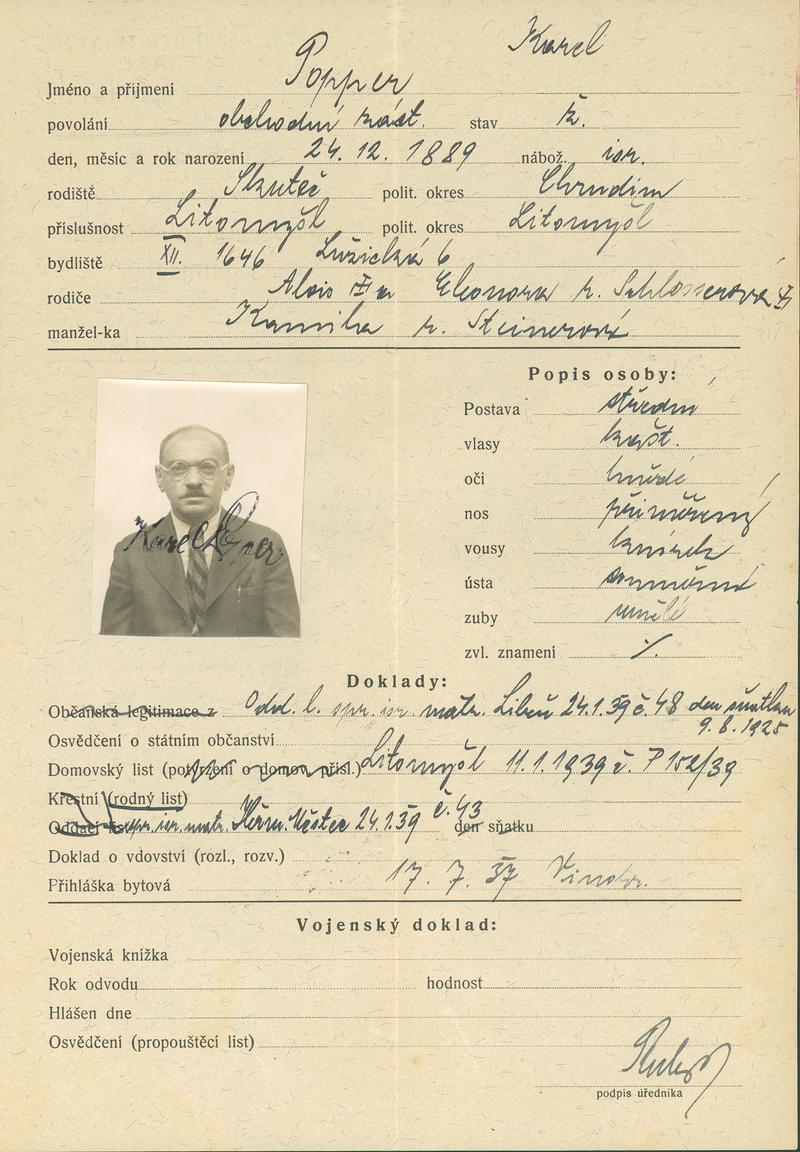 Karel
Jméno a příjmení Popper
povolání obchodní zást. stav ž.
den, měsíc a rok narození 24. 12. 1889 nábož. isr.
rodiště Skuteč polit. okres Chrudim
příslušnost Litomyšl polit. okres Litomyšl
bydliště XII. 1646 Lužická 6
rodiče Alois a Eleonora r. Schlosserová
manžel-ka Kamila r. Steinerová
Popis osoby:
Postava střední
vlasy kašt.
oči hnědé
nos přiměřený
vousy knírek
ústa souměrná
zuby umělé
zvl. znamení ⁒
Karel Popper
Doklady:
Občanská legitimace z Odd. l. spr. isr. matr. Libeň 24.1.39 č. 48 den sňatku
9.8.1925
Osvědčení o státním občanství
Domovský list (potvrzení o domov. přísl.) Litomyšl 11.1.1939 č. P 152/39
Křestní (rodný list)
Oddací list spr. isr. matr. Heřm. Městec 24.1.39 č. 43 den sňatku
Doklad o vdovství (rozl., rozv.)
Přihláška bytová 17. 7. 37 Vinohr.
Vojenský doklad:
Vojenská knížka
Rok odvodu hodnost
Hlášen dne
Osvědčení (propouštěcí list)
podpis úředníka